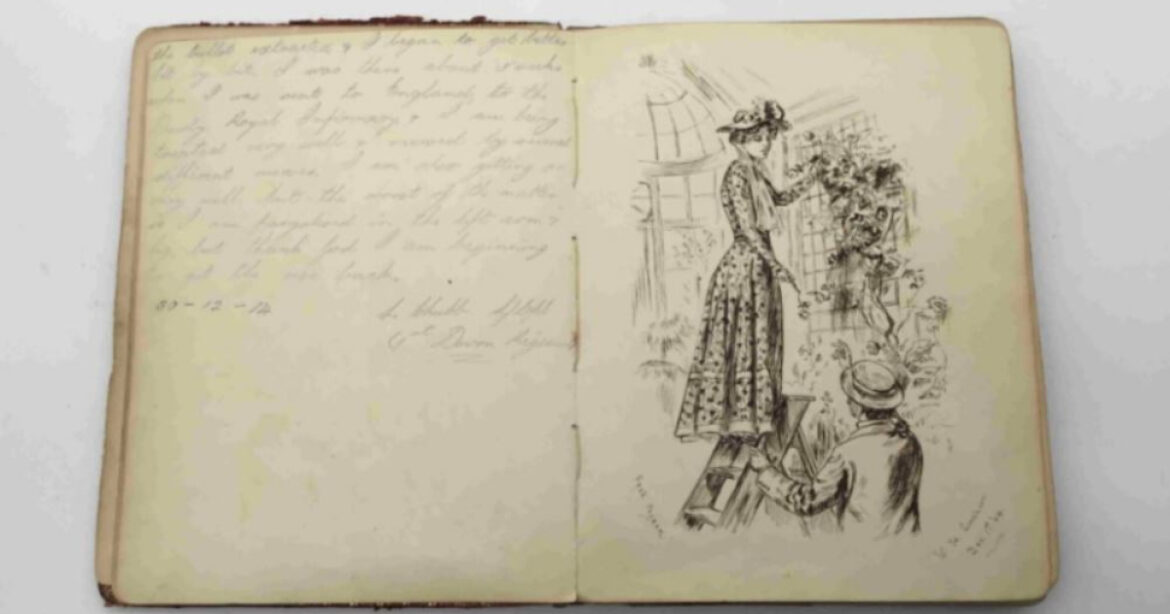 the bullet extracted & I began to get better
bit by bit. I was there about weeks
when I was sent to England, to the
Royal Infirmary & I am being
treated very well & nursed by several
different nurses. I am also getting on
very well, but the worst of the matter
is I am paralysed in the left arm &
leg, but thank God I am beginning
to get the use back.
30-12-14
L.
Devon